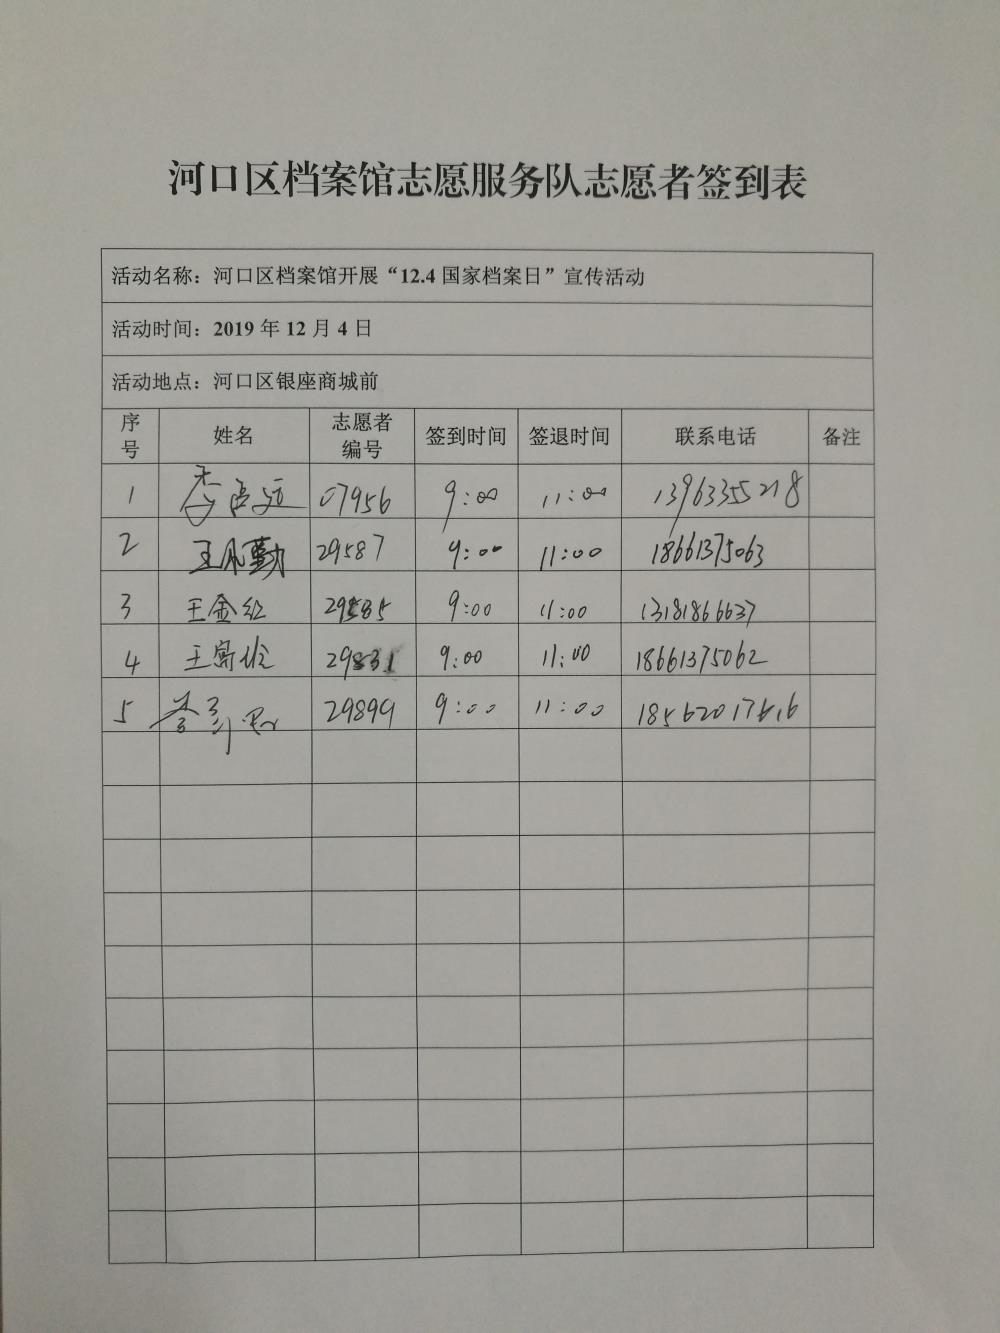 河口区档案馆志愿服务队志愿者签到表
活动名称：河口区档案馆开展“12.4国家档案日”宣传活动
活动时间：2019年12月4日
活动地点：河口区银座商城前
序号 姓名 志愿者编号 签到时间 签退时间 联系电话 备注
1 李 07956 9:00 11:00 13963355218
2 王凤勤 29587 9:00 11:00 18661375063
3 王金红 29585 9:00 11:00 13181866637
4 王 29831 9:00 11:00 18661375062
5 李 29899 9:00 11:00 18562017616